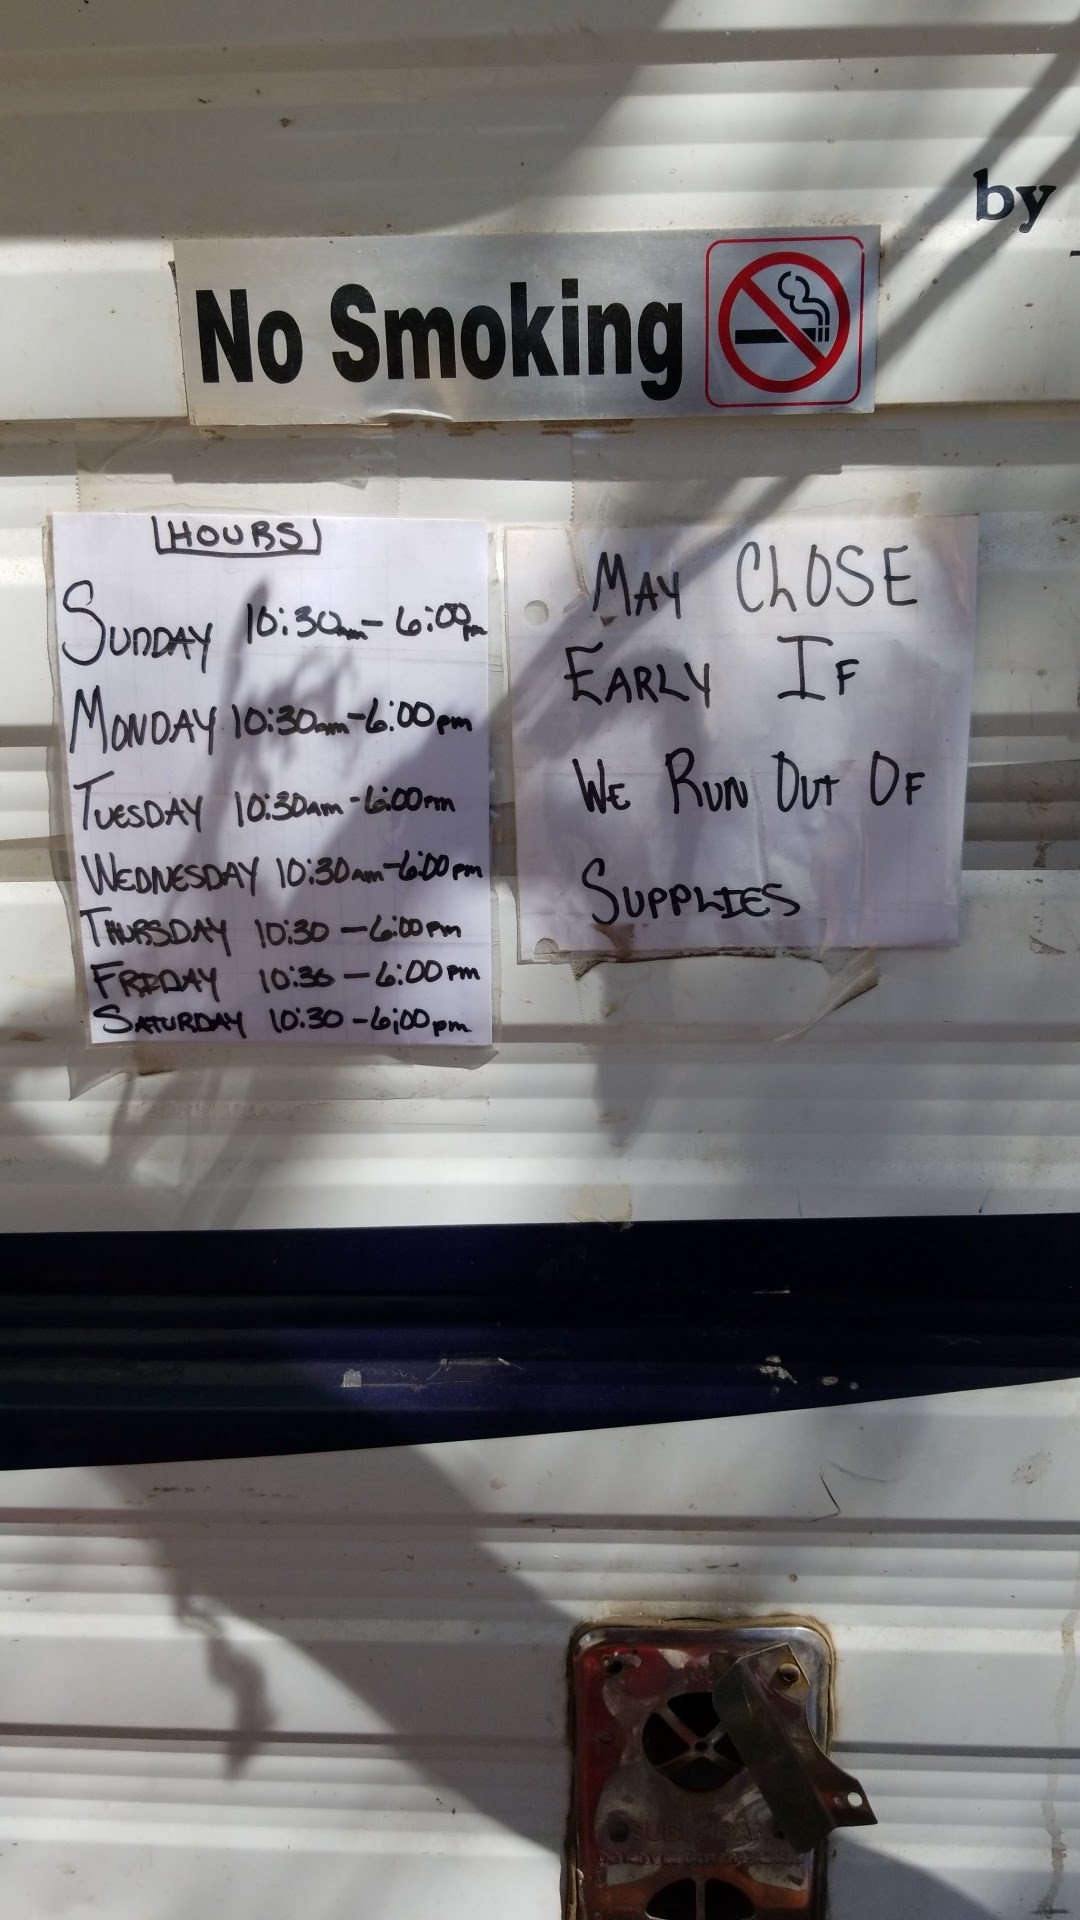 by
No Smoking
HOURS
SUNDAY 10:30am - 6:00pm
MONDAY 10:30am - 6:00pm
TUESDAY 10:30am - 6:00pm
WEDNESDAY 10:30am - 6:00pm
THURSDAY 10:30 - 6:00pm
FRIDAY 10:30 - 6:00pm
SATURDAY 10:30 - 6:00pm
MAY CLOSE
EARLY IF
WE RUN OUT OF
SUPPLIES